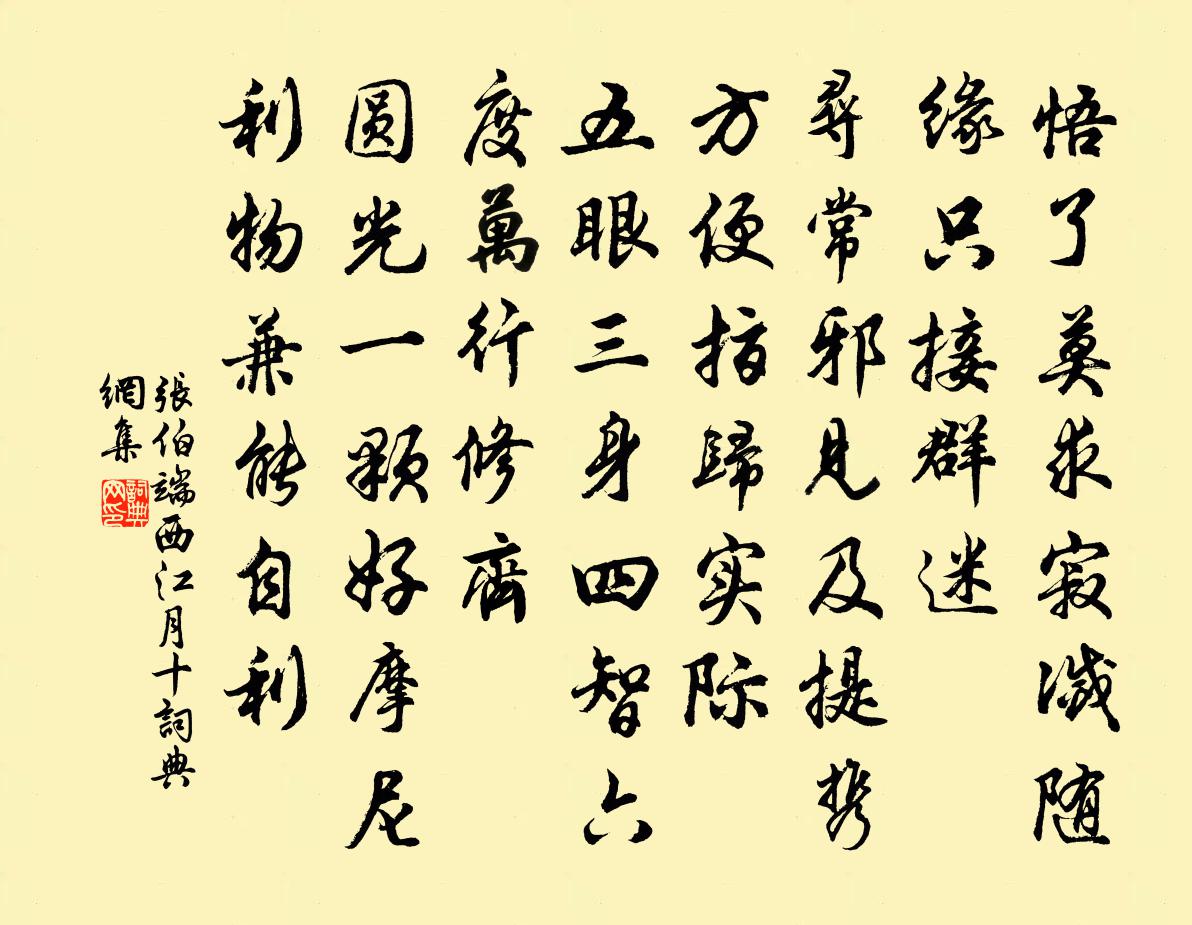 悟了莫求寂滅随
缘只接群迷
尋常邪见及提携
方便指歸实际
五眼三身四智六
度萬行修齊
圆光一颗好摩尼
利物兼能自利
張伯端西江月十詞典
網集
詞典网印